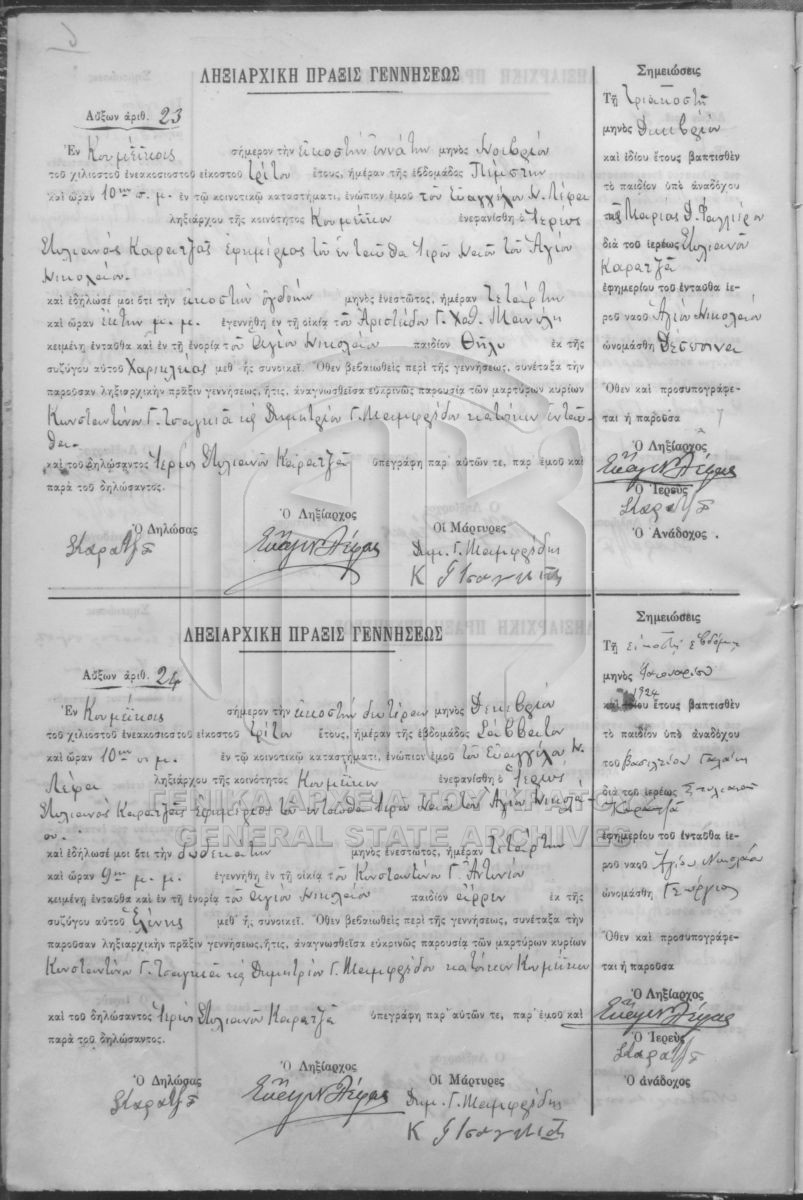 ΛΗΞΙΑΡΧΙΚΗ ΠΡΑΞΙΣ ΓΕΝΝΗΣΕΩΣ
Αὔξων ἀριθ. 23
Ἐν Κουμέϊκοις σήμερον τὴν εἰκοστὴν ἐννάτην μηνὸς Νοεβρίου
τοῦ χιλιοστοῦ ἐνεακοσιοστοῦ εἰκοστοῦ τρίτου ἔτους, ἡμέραν τῆς ἑβδομάδος Πέμπτην
καὶ ὥραν 10ην π. μ. ἐν τῷ κοινοτικῷ καταστήματι, ἐνώπιον ἐμοῦ τοῦ Εὐαγγέλου Ν. Λέφα
ληξιάρχου τῆς κοινότητος Κουμέϊκων ἐνεφανίσθη ὁ Ἱερεὺς
Στυλιανὸς Καρατζᾶς ἐφημέριος τοῦ ἐνταῦθα Ἱεροῦ Ναοῦ τοῦ Ἁγίου
Νικολάου.
καὶ ἐδήλωσέ μοι ὅτι τὴν εἰκοστὴν ὀγδόην μηνὸς ἐνεστῶτος, ἡμέραν Τετάρτην
καὶ ὥραν ἕκτην μ. μ. ἐγεννήθη ἐν τῇ οἰκίᾳ τοῦ Ἀριστείδου Γ. Χατ. Μανώλη
κειμένῃ ἐνταῦθα καὶ ἐν τῇ ἐνορίᾳ τοῦ Ἁγίου Νικολάου παιδίον Θῆλυ ἐκ τῆς
συζύγου αὐτοῦ Χαρικλείας μεθ᾽ ἧς συνοικεῖ. Ὅθεν βεβαιωθεὶς περὶ τῆς γεννήσεως, συνέταξα τὴν
παροῦσαν ληξιαρχικὴν πρᾶξιν γεννήσεως, ἥτις, ἀναγνωσθεῖσα εὐκρινῶς παρουσίᾳ τῶν μαρτύρων κυρίων
Κωνσταντίνου Γ. Τσαγκιᾶ κ Δημητρίου Γ. κατοίκων ἐνταῦ-
θα.
καὶ τοῦ δηλώσαντος Ἱερέως Στυλιανοῦ Καρατζᾶ ὑπεγράφη παρ᾽ αὐτῶν τε, παρ᾽ ἐμοῦ καὶ
παρὰ τοῦ δηλώσαντος.
Ὁ Δηλώσας Ὁ Ληξίαρχος Οἱ Μάρτυρες
ΣΚαρατζᾶς Εὐάγ Ν Λέφας Δημ. Γ.
Κ Γ Τσαγκιᾶς
Σημειώσεις
Τῇ τριακοστῇ
μηνὸς Δεκεβρίου
καὶ ἰδίου ἔτους βαπτισθὲν
τὸ παιδίον ὑπὸ ἀναδόχου
τῆς Μαρίας Δ.
διὰ τοῦ ἱερέως Στυλιανοῦ
Καρατζᾶ
ἐφημερίου τοῦ ἐνταῦθα ἱε-
ροῦ ναοῦ Ἁγίου Νικολάου
ὠνομάσθη Δέσποινα
Ὅθεν καὶ προσυπογράφε-
ται ἡ παροῦσα
Ὁ Ληξίαρχος
Εὐάγ Ν Λέφας
Ὁ Ἱερεὺς
ΣΚαρατζᾶς
Ὁ Ἀνάδοχος
ΛΗΞΙΑΡΧΙΚΗ ΠΡΑΞΙΣ ΓΕΝΝΗΣΕΩΣ
Αὔξων ἀριθ. 24
Ἐν Κουμέϊκοις σήμερον τὴν εἰκοστὴν δευτέραν μηνὸς Δεκεβρίου
τοῦ χιλιοστοῦ ἐνεακοσιοστοῦ εἰκοστοῦ τρίτου ἔτους, ἡμέραν τῆς ἑβδομάδος Σάββατον
καὶ ὥραν 10ην π. μ. ἐν τῷ κοινοτικῷ καταστήματι, ἐνώπιον ἐμοῦ τοῦ Εὐαγγέλου Ν.
Λέφα ληξιάρχου τῆς κοινότητος Κουμέϊκων ἐνεφανίσθη ὁ Ἱερεὺς
Στυλιανὸς Καρατζᾶς ἐφημέριος τοῦ ἐνταῦθα Ἱεροῦ Ναοῦ τοῦ Ἁγίου Νικολά-
ου.
καὶ ἐδήλωσέ μοι ὅτι τὴν δωδεκάτην μηνὸς ἐνεστῶτος, ἡμέραν Τετάρτην
καὶ ὥραν 9ην μ. μ. ἐγεννήθη ἐν τῇ οἰκίᾳ τοῦ Κωνσταντίνου Γ. Ἀντωνίου
κειμένῃ ἐνταῦθα καὶ ἐν τῇ ἐνορίᾳ τοῦ Ἁγίου Νικολάου παιδίον ἄρρεν ἐκ τῆς
συζύγου αὐτοῦ Ἑλένης μεθ᾽ ἧς συνοικεῖ. Ὅθεν βεβαιωθεὶς περὶ τῆς γεννήσεως, συνέταξα τὴν
παροῦσαν ληξιαρχικὴν πρᾶξιν γεννήσεως, ἥτις, ἀναγνωσθεῖσα εὐκρινῶς παρουσίᾳ τῶν μαρτύρων κυρίων
Κωνσταντίνου Γ. Τσαγκιᾶ κ Δημητρίου Γ. κατοίκων Κουμέϊκων
καὶ τοῦ δηλώσαντος Ἱερέως Στυλιανοῦ Καρατζᾶ ὑπεγράφη παρ᾽ αὐτῶν τε, παρ᾽ ἐμοῦ καὶ
παρὰ τοῦ δηλώσαντος.
Ὁ Δηλώσας Ὁ Ληξίαρχος Οἱ Μάρτυρες
ΣΚαρατζᾶς Εὐάγ Ν Λέφας Δημ. Γ.
Κ Γ Τσαγκιᾶς
Σημειώσεις
Τῇ εἰκοστῇ ἑβδόμῃ
μηνὸς Ἰανουαρίου
1924
καὶ ἰδίου ἔτους βαπτισθὲν
τὸ παιδίον ὑπὸ ἀναδόχου
τοῦ Βασιλείου
διὰ τοῦ ἱερέως Στυλιανοῦ
Καρατζᾶ
ἐφημερίου τοῦ ἐνταῦθα ἱε-
ροῦ ναοῦ Ἁγίου Νικολάου
ὠνομάσθη Γεώργιος
Ὅθεν καὶ προσυπογράφε-
ται ἡ παροῦσα
Ὁ Ληξίαρχος
Εὐάγ Ν Λέφας
Ὁ Ἱερεὺς
ΣΚαρατζᾶς
Ὁ ἀνάδοχος
ΓΕΝΙΚΑ ΑΡΧΕΙΑ ΤΟΥ ΚΡΑΤΟΥΣ
GENERAL STATE ARCHIVES